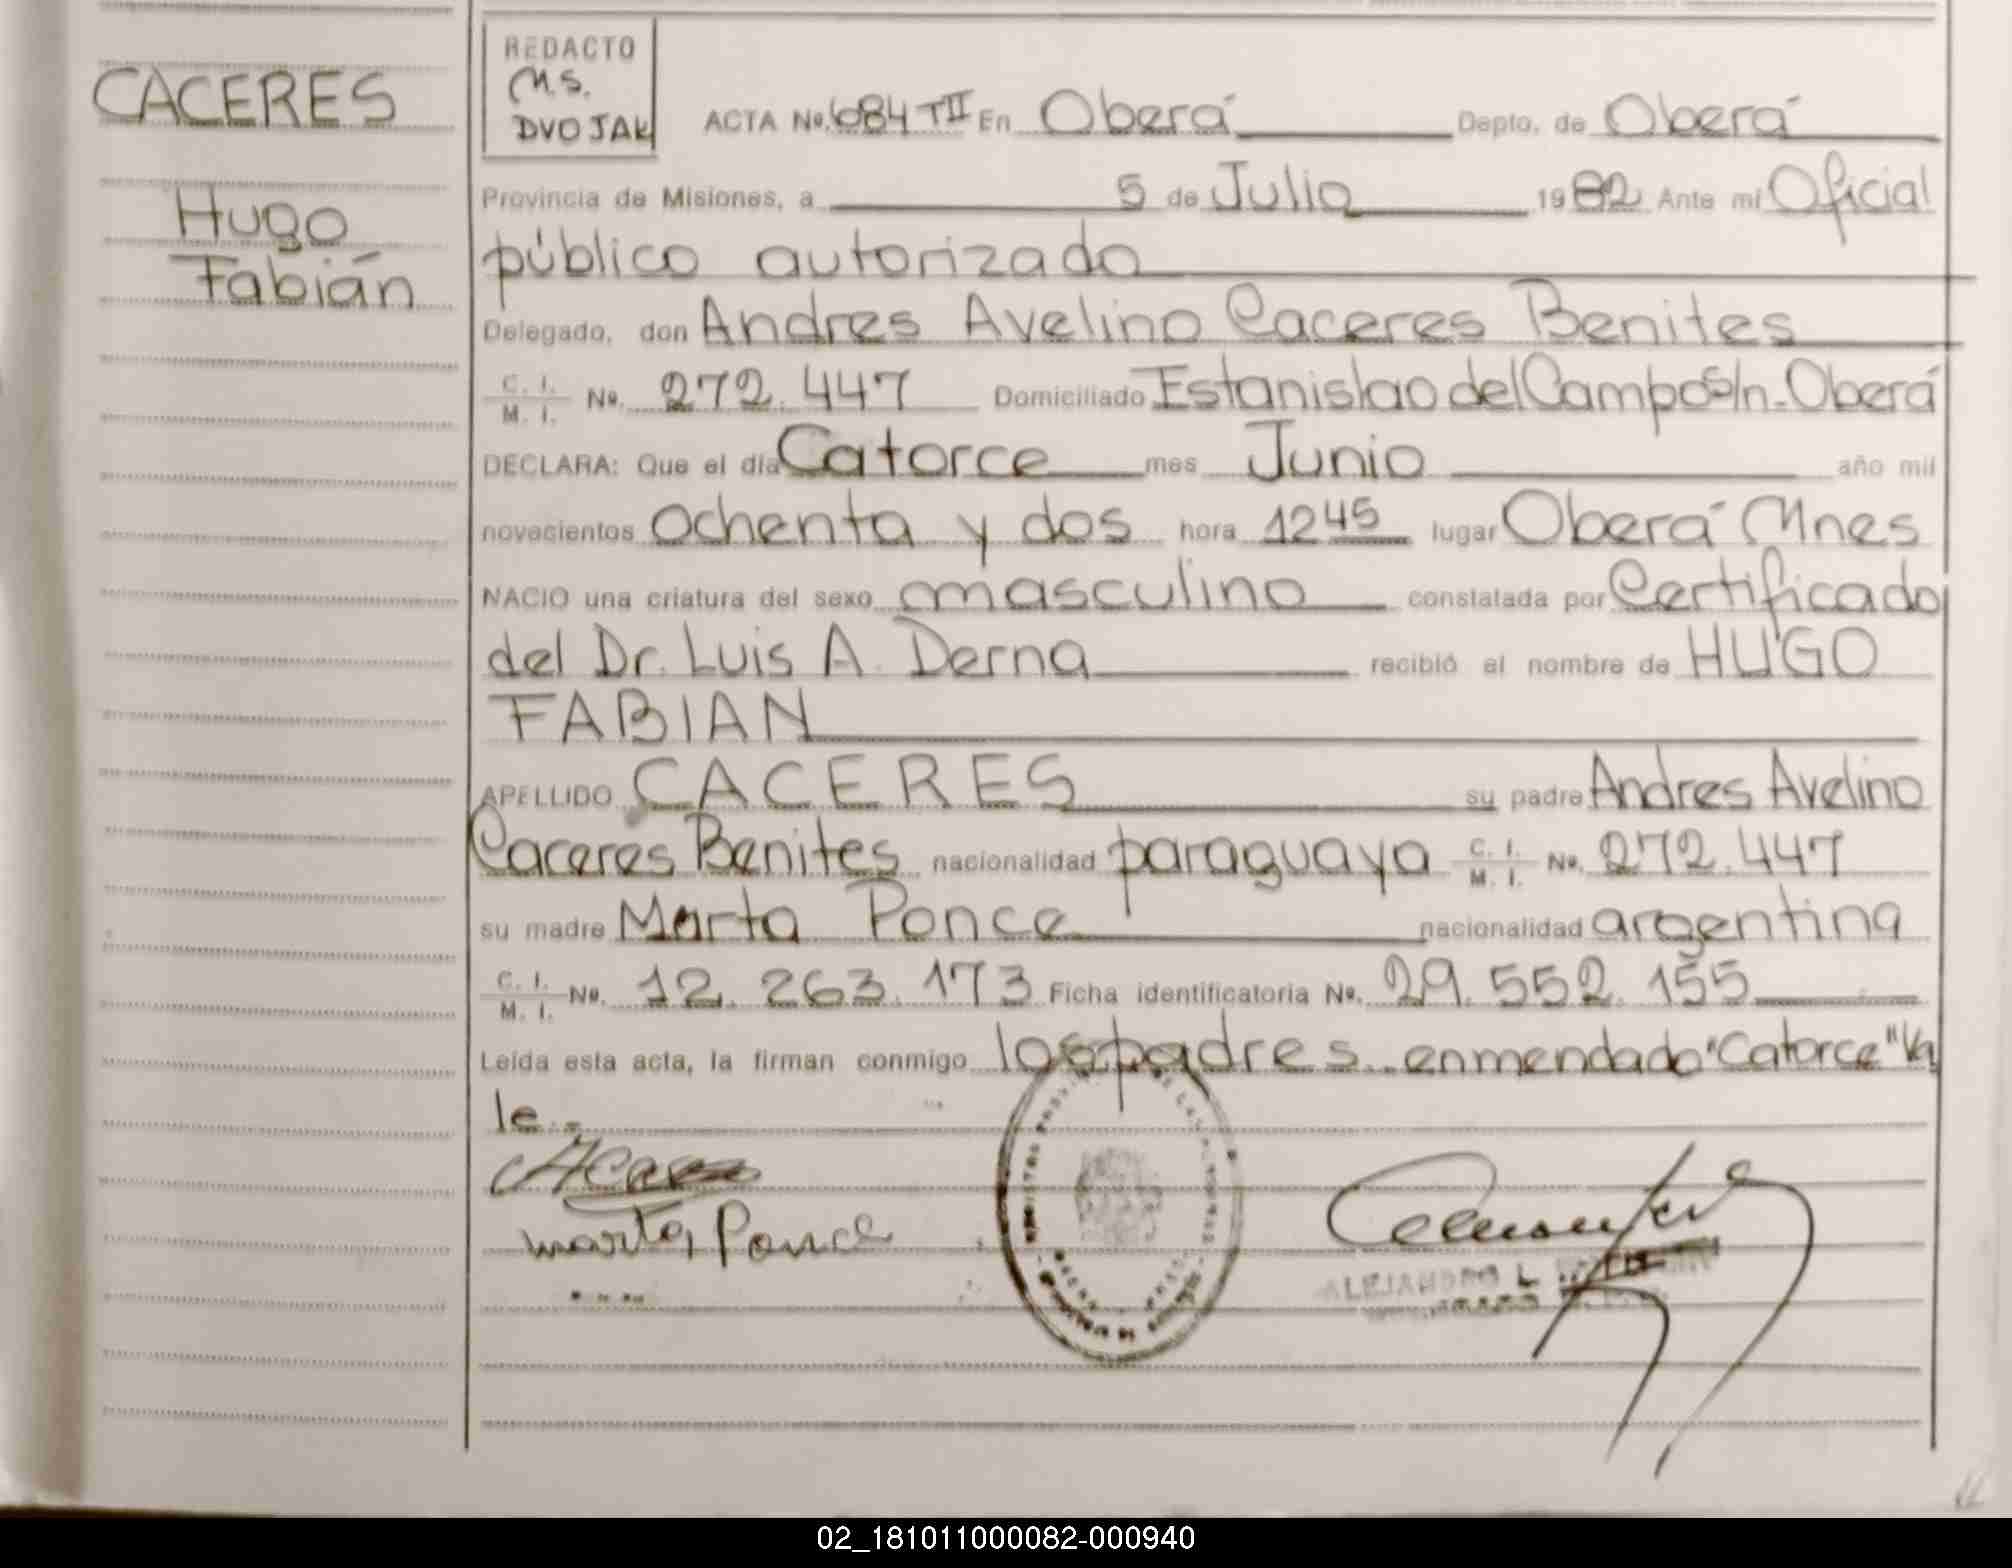 CACERES
Hugo
Fabián
REDACTO
M.S.
DVOJAK
ACTA No. 684 TII En Oberá Depto. de Oberá
Provincia de Misiones, a 5 de Julio 1982 Ante mi Oficial
público autorizado
Delegado, don Andres Avelino Caceres Benites
C. I. / M. I. No. 272.447 Domiciliado Estanislao del Campo s/n. Oberá
DECLARA: Que el día Catorce mes Junio año mil
novecientos ochenta y dos hora 12 45 lugar Oberá Mnes
NACIO una criatura del sexo masculino constatada por Certificado
del Dr. Luis A. Derna recibió el nombre de HUGO
FABIAN
APELLIDO CACERES su padre Andres Avelino
Caceres Benites nacionalidad paraguaya C. I. / M. I. No. 272.447
su madre Marta Ponce nacionalidad argentina
C. I. / M. I. No. 12.263.173 Ficha identificatoria No. 29.552.155
Leída esta acta, la firman conmigo los padres. enmendado "Catorce" Va
le.-
Marta Ponce
ALEJANDRO L
02_181011000082-000940